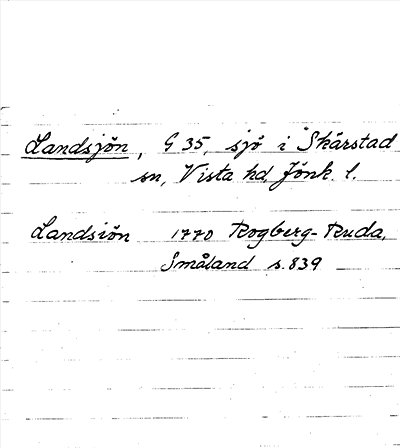 Landsjön, G 35, sjö i Skärstad
sn, Vista hd, Jönk. l.
Landsiön 1770 Rogberg-Ruda,
Småland s. 839